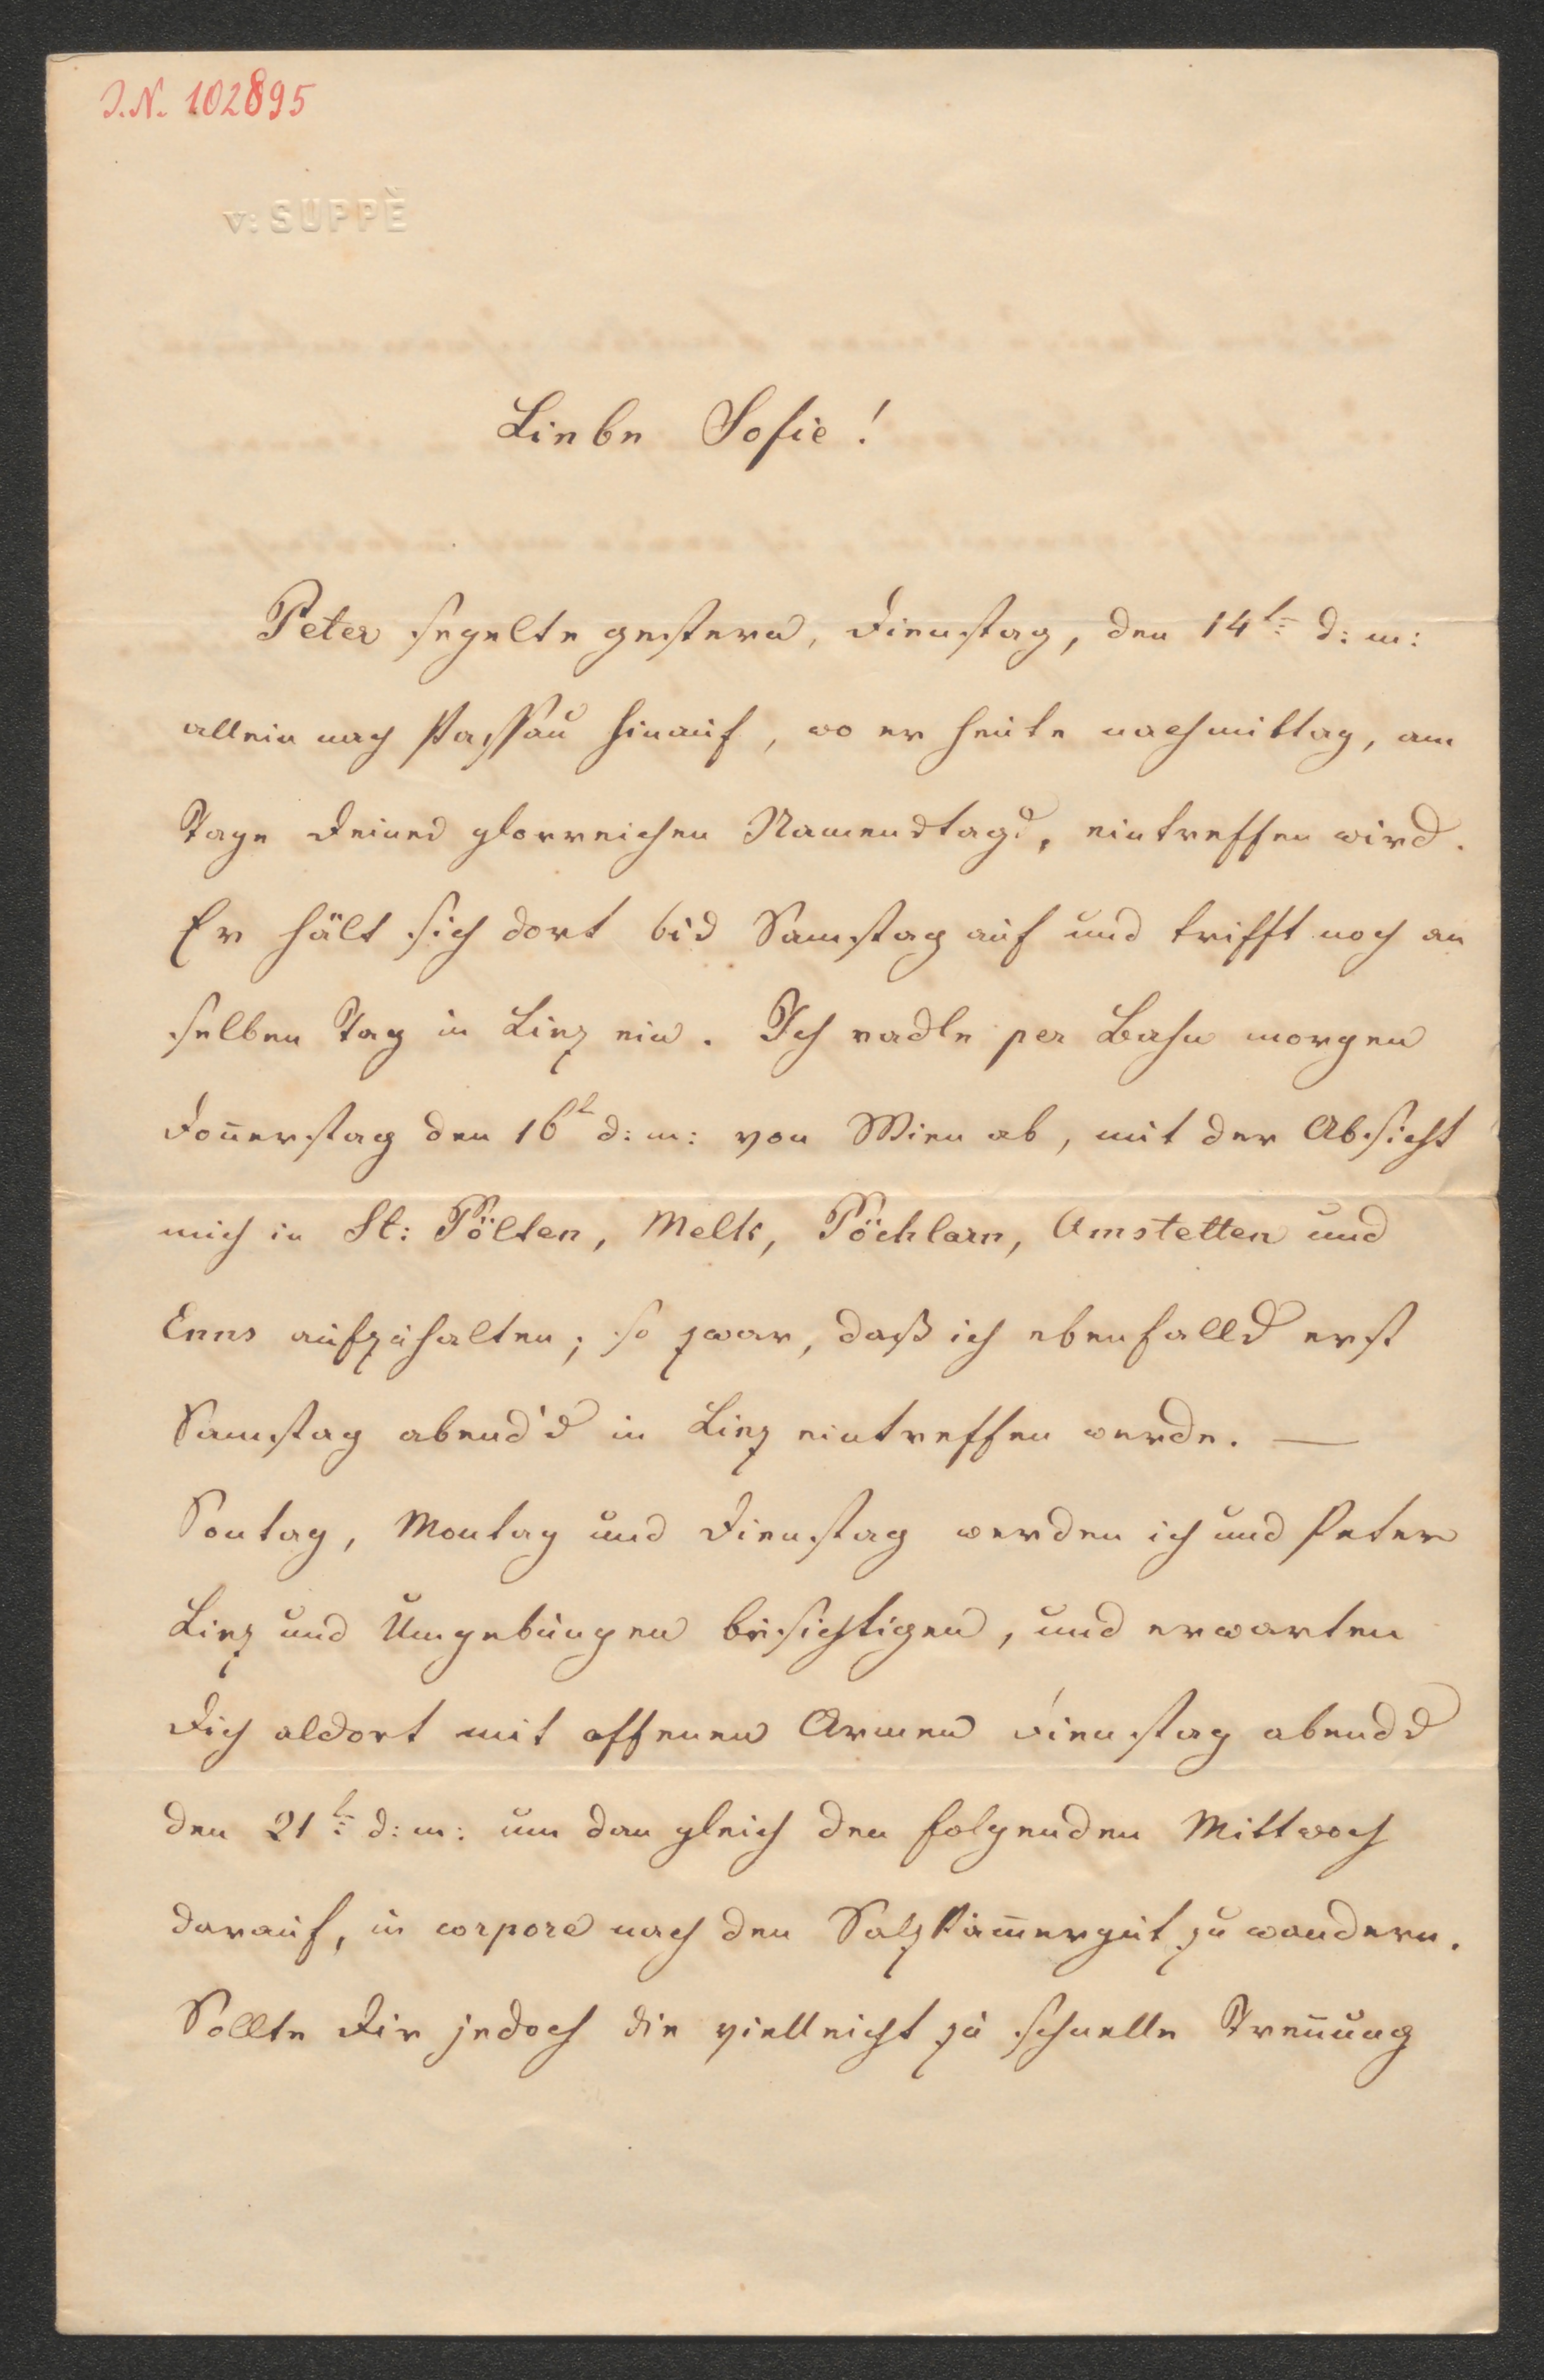 I.N. 102895
v: SUPPÈ
Liebe Sofie!
Peter segelte gestern, Dienstag, den 14t: d: m:
allein nach Passau hinauf, wo er heute nachmittag, am
Tage Deines glorreichen Namenstags, eintreffen wird.
Er hält sich dort bis Samstag auf und trifft noch an
selben Tag in Linz ein. Ich radle per Bahn morgen
Don̄erstag den 16t d: m: von Wien ab, mit der Absicht
mich in St: Pölten, Melk, Pöchlarn, Amstetten und
Enns aufzuhalten; so zwar, daß ich ebenfalls erst
Samstag abend's in Linz eintreffen werde. —
Sontag, Montag und Dienstag werden ich und Peter
Linz und Umgebungen besichtigen, und erwarten
Dich aldort mit offenen Armen Dienstag abends
den 21t: d: m: um dan gleich den folgenden Mittwoch
darauf, in corpore nach den Salzkam̄ergut zu wandern.
Sollte Dir jedoch die vielleicht zu schnelle Tren̄ung